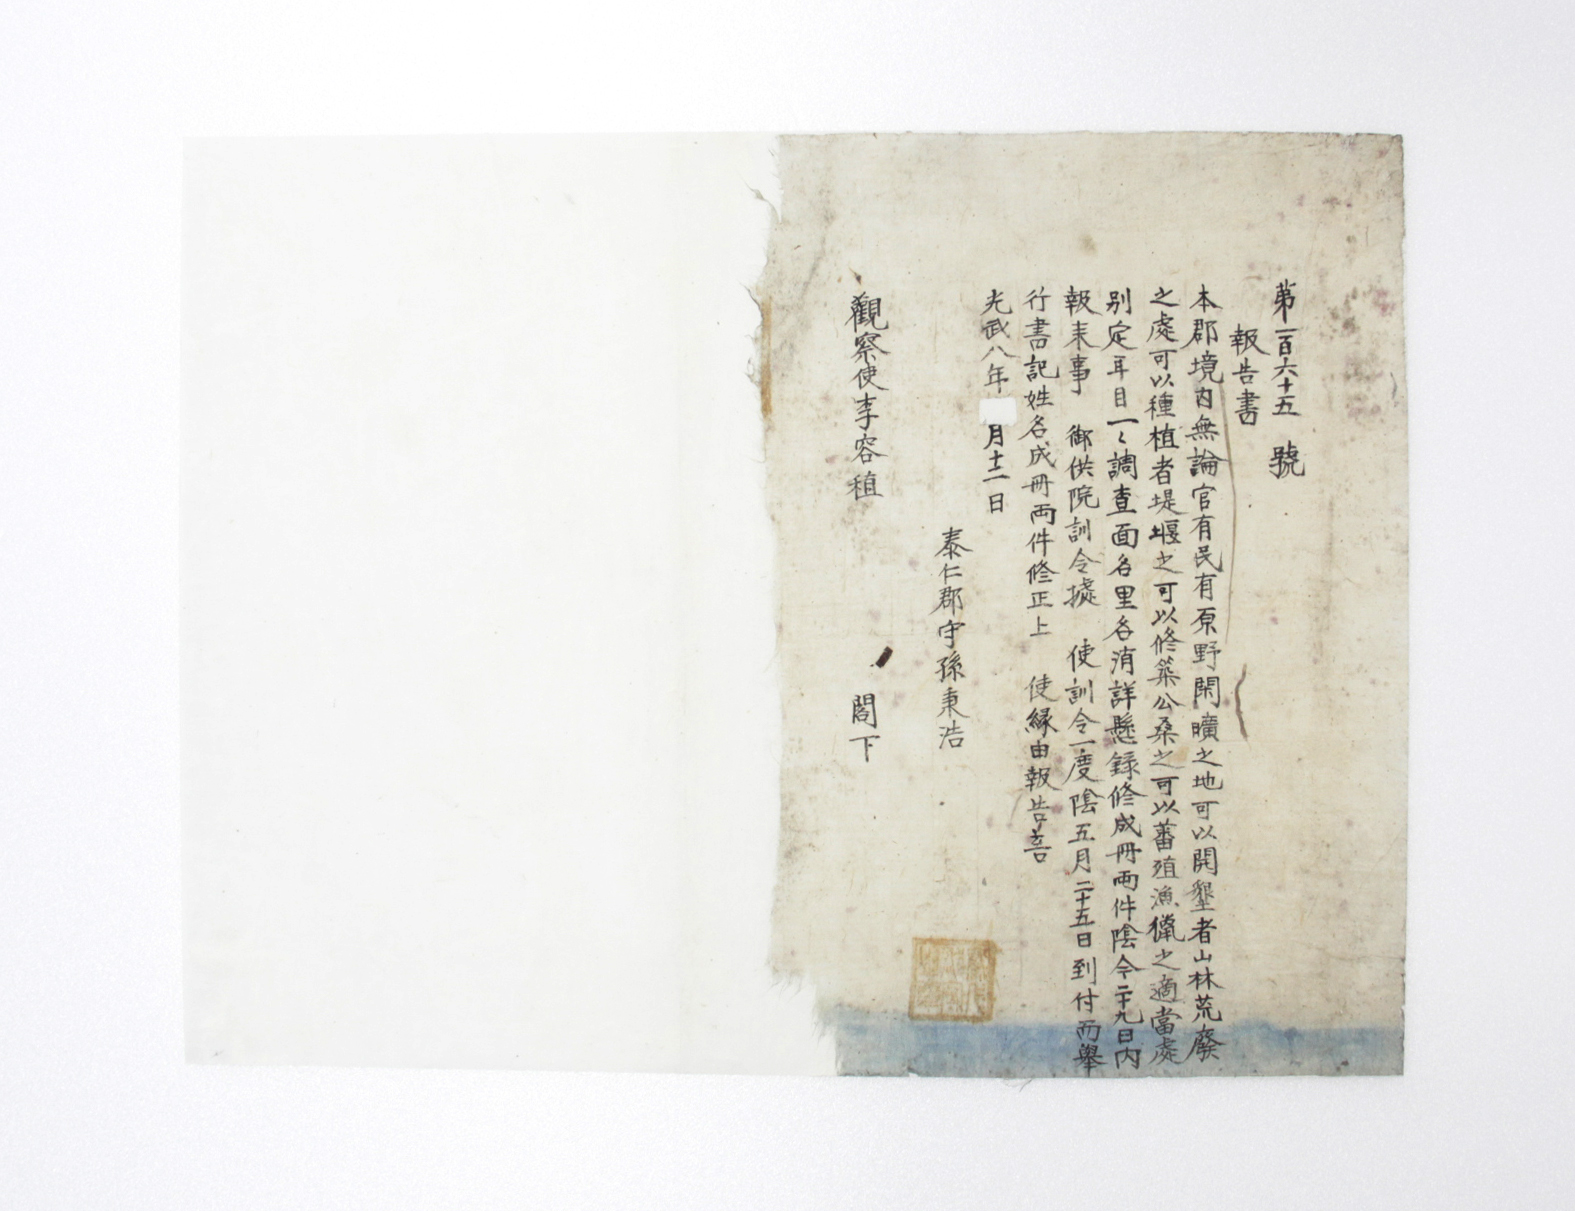 第一百六十五 號
報告書
本郡境內無論官有民有原野閑曠之地可以開墾者山林荒廢
之處可以種植者堤堰之可以修築公桑之可以蕃殖漁獵之適當處
別定耳目一〻調查面名里名消詳懸錄修成冊兩件陰今二十九日內
報來事 御供院訓令據 使訓令一度陰五月二十五日到付而擧
行書記姓名成冊兩件修正上 使緣由報告喜
光武八年 月十二日
泰仁郡守孫秉浩
觀察使李容稙 閣下